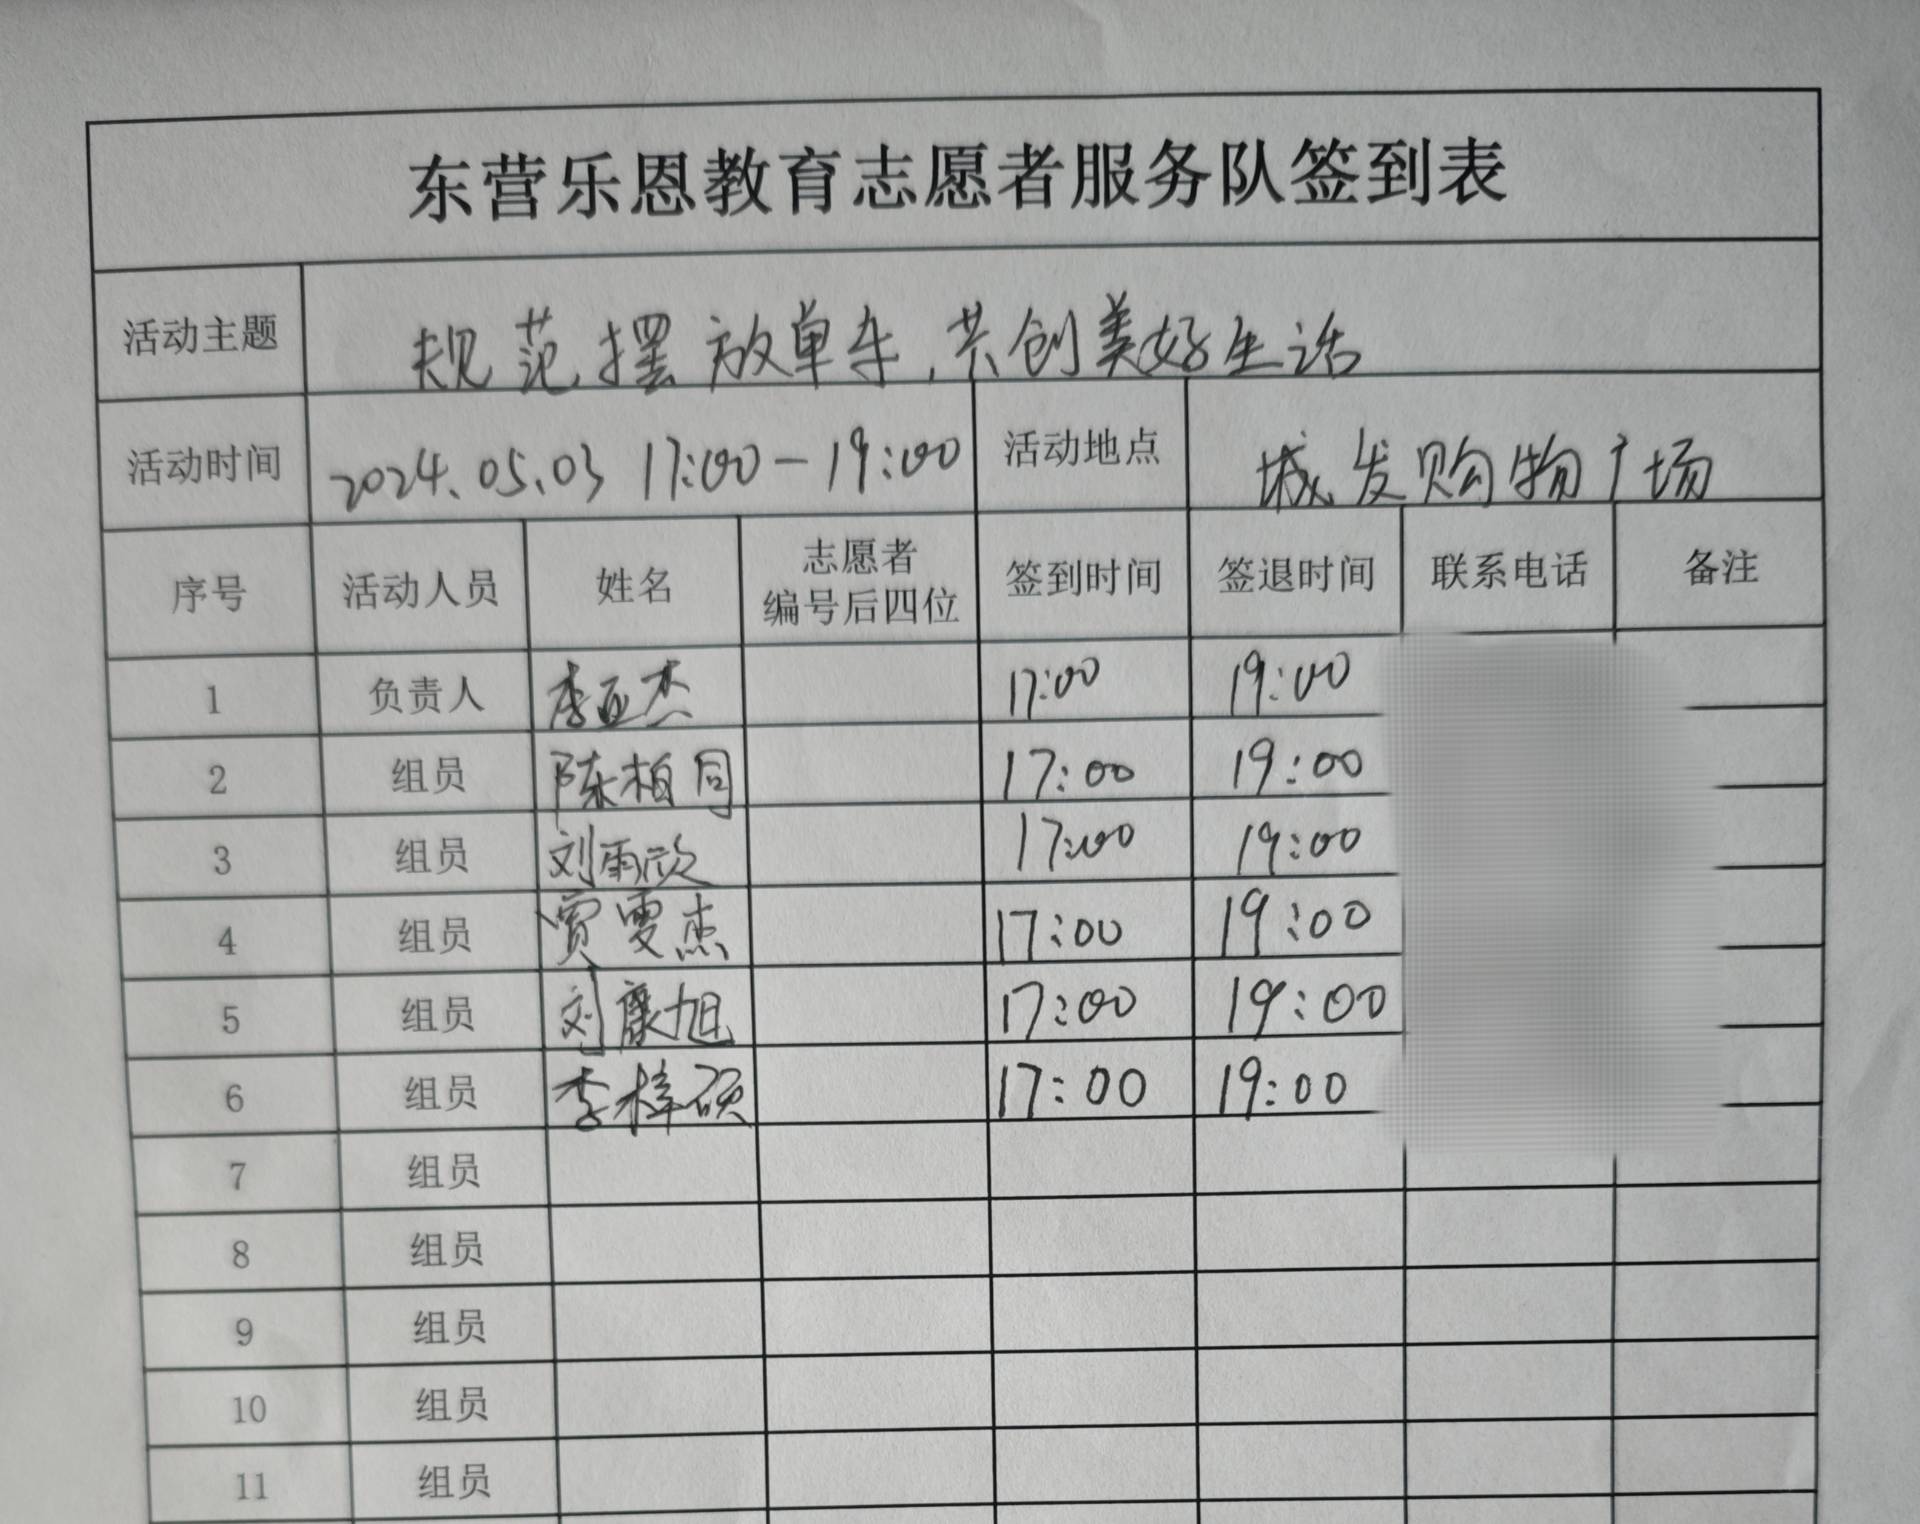 东营乐恩教育志愿者服务队签到表
活动主题 规范摆放单车,共创美好生活
活动时间 2024.05.03 17:00-19:00 活动地点 城发购物广场
序号 活动人员 姓名 志愿者编号后四位 签到时间 签退时间 联系电话 备注
1 负责人 李亚杰 17:00 19:00
2 组员 陈柏同 17:00 19:00
3 组员 刘雨欣 17:00 19:00
4 组员 贾雯杰 17:00 19:00
5 组员 刘康旭 17:00 19:00
6 组员 李梓硕 17:00 19:00
7 组员
8 组员
9 组员
10 组员
11 组员